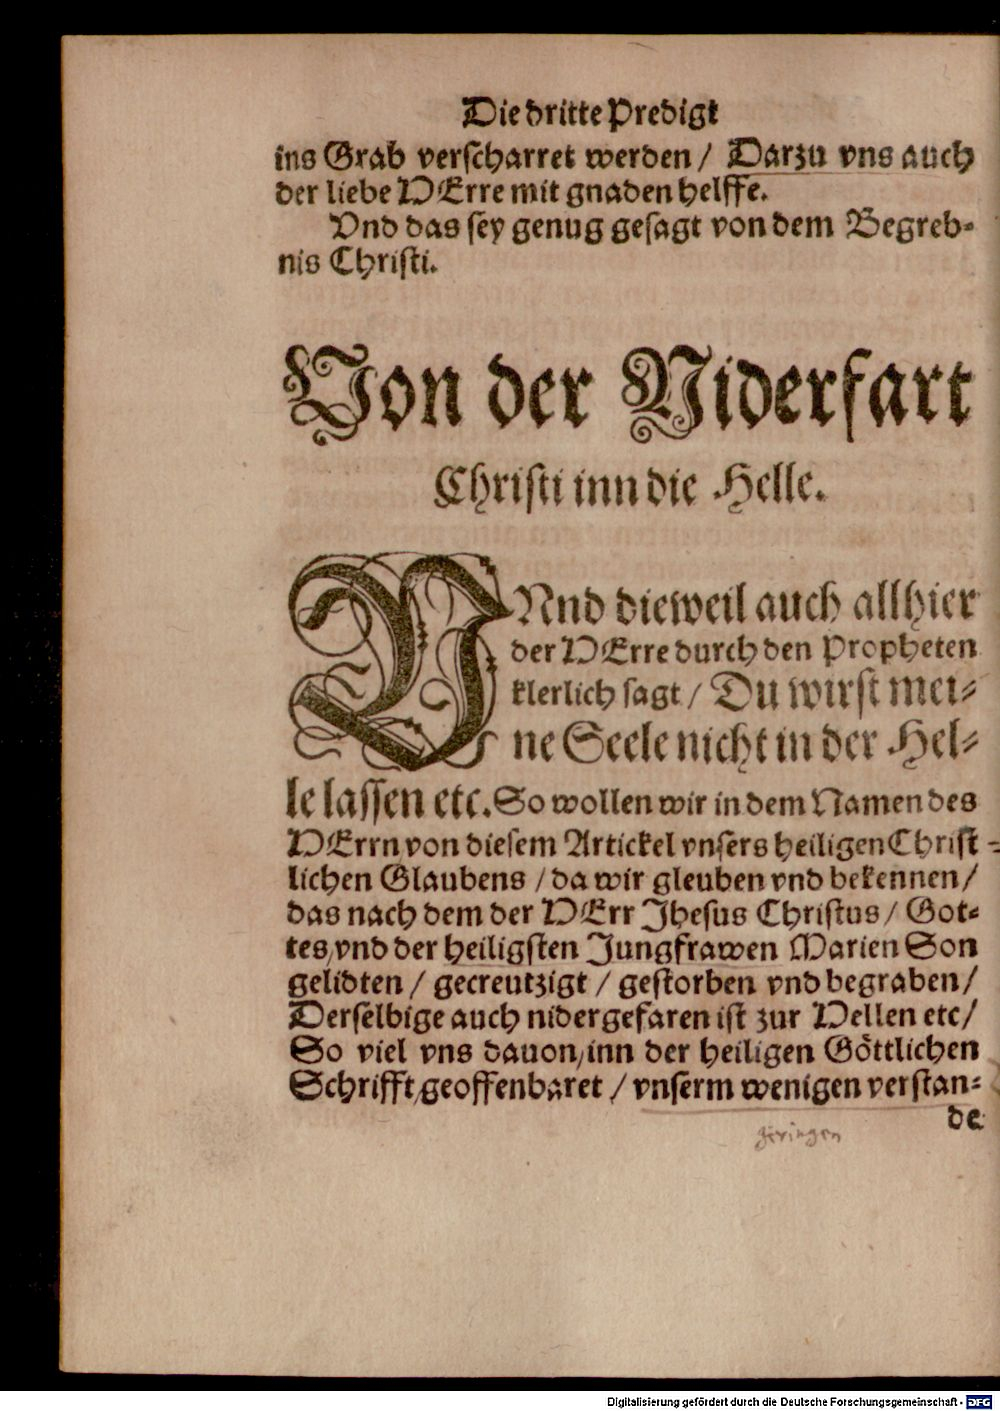 Die dritte Predigt
ins Grab verscharret werden / Darzu vns auch
der liebe HErre mit gnaden helffe.
Vnd das sey genug gesagt von dem Begreb-
nis Christi.
Von der Niderfart
Christi inn die Helle.
VNnd dieweil auch allhier
der HErre durch den Propheten
klerlich sagt / Du wirst mei-
ne Seele nicht in der Hel-
le lassen etc. So wollen wir in dem Namen des
HErrn von diesem Artickel vnsers heiligen Christ-
lichen Glaubens / da wir gleuben vnd bekennen /
das nach dem der HErr Jhesus Christus / Got-
tes, vnd der heiligsten Jungfrawen Marien Son
gelidten / gecreutzigt / gestorben vnd begraben /
Derselbige auch nidergefaren ist zur Hellen etc /
So viel vns dauon, inn der heiligen Göttlichen
Schrifft, geoffenbaret / vnserm wenigen verstan-
de
geringen
Digitalisierung gefördert durch die Deutsche Forschungsgemeinschaft - DFG